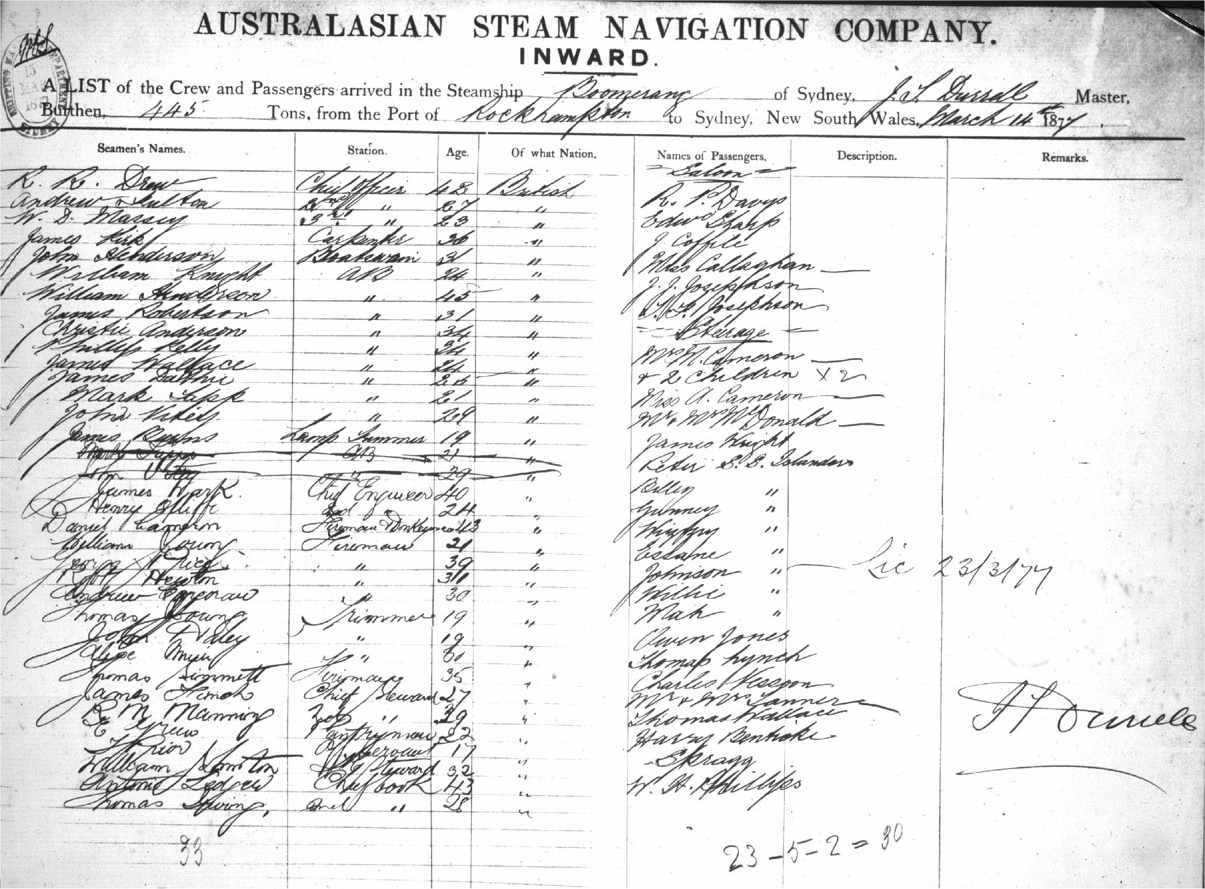 AUSTRALASIAN STEAM NAVIGATION COMPANY.
INWARD.
A LIST of the Crew and Passengers arrived in the Steamship Boomerang of Sydney, Master,
Burthen, 445 Tons, from the Port of Rockhampton to Sydney, New South Wales, March 14th 1877
Seamen's Names. Station. Age. Of what Nation. Names of Passengers. Description. Remarks.
Saloon
R. R. Drew Chief Officer 48 British R. P. Davys
Andrew Fulton 2nd " 27 " Edwd Sharp
W. D. Massey 3rd " 23 " J.
James Kirk Carpenter 36 " Miss Callaghan
John Henderson Boatswain 31 " J. J. Josephson
William Knight AB 24 " Josephson
William Henderson " 45 " Steerage
James Robertson " 31 " Mrs M. Cameron
Christie Anderson " 34 " & 2 Children X 2
Phillip Kelly " 34 " Miss A. Cameron
James Wallace " 24 " Mr & Mrs McDonald
James " 25 " James Knight
Mark " 21 " Peter S. S. Islander
John " 29 " Billy "
James Burns Lamp Trimmer 19 " "
AB 21 " "
" 29 " Essane "
James Mark. Chief Engineer 40 " Johnson " Lic 23/3/77
Henry 2nd " 24 " Willie "
Daniel Cameron Fireman & Donkeyman 43 " Mak "
William Young Fireman 21 " Owen Jones
George Price " 39 " Thomas Lynch
Robt Newton " 31 " Charles
Andrew " 30 " Mr & Mrs Tanner
Thomas Young Trimmer 19 " Thomas Wallace
John Haley " 19 " Harry
Muir " " Spragg
Thomas Simmett Fireman 35 " W. H. Phillips
James Finch Chief Steward 27 "
R. M. Manning 2nd " 29 "
Grew Pantryman 22 "
17 "
William Steward 32 "
Antonio Chief Cook 43 "
Thomas 2nd " 28 "
33 23 - 5 - 2 = 30